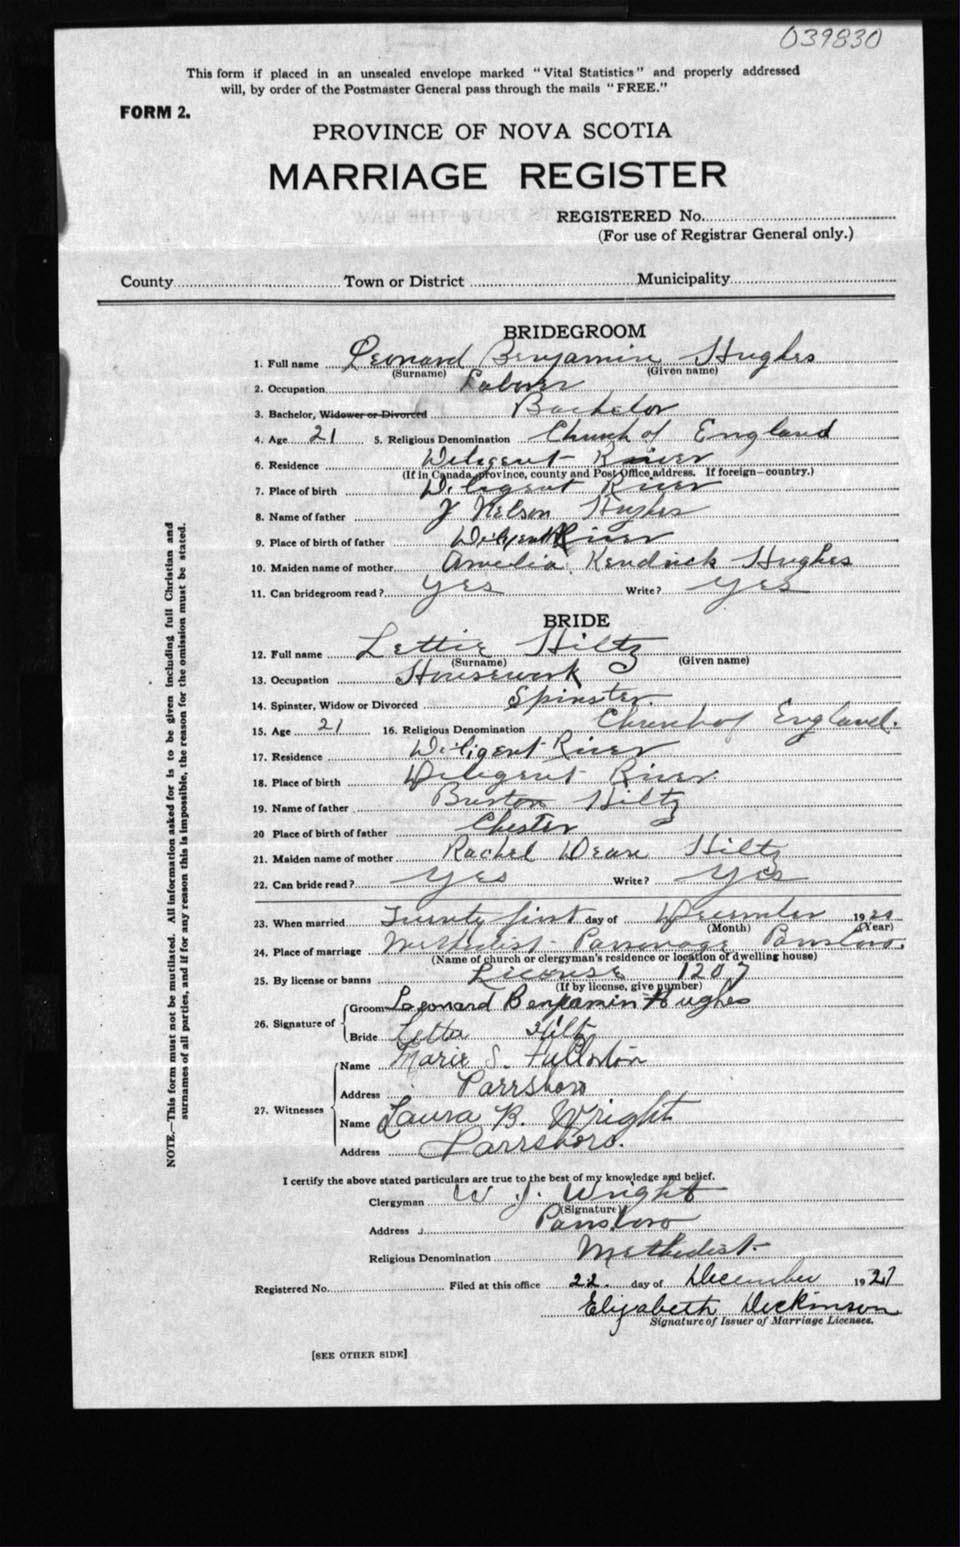 039830
This form if placed in an unsealed envelope marked "Vital Statistics" and properly addressed
will, by order of the Postmaster General pass through the mails "FREE."
FORM 2.
PROVINCE OF NOVA SCOTIA
MARRIAGE REGISTER
REGISTERED No.
(For use of Registrar General only.)
County Town or District Municipality
BRIDEGROOM
1. Full name Leonard Benjamin Hughes
(Surname) (Given name)
2. Occupation Laborer
3. Bachelor, Widower or Divorced Bachelor
4. Age 21 5. Religious Denomination Church of England
6. Residence Diligent River
(If in Canada, province, county and Post Office address. If foreign—country.)
7. Place of birth Diligent River
8. Name of father J Nelson Hughes
9. Place of birth of father Diligent River
10. Maiden name of mother Amelia Kendrick Hughes
11. Can bridegroom read? Yes Write? Yes
BRIDE
12. Full name Lettie Hiltz
(Surname) (Given name)
13. Occupation Housework
14. Spinster, Widow or Divorced Spinster
15. Age 21 16. Religious Denomination Church of England.
17. Residence Diligent River
18. Place of birth Diligent River
19. Name of father Burton Hiltz
20 Place of birth of father Chester
21. Maiden name of mother Rachel Hiltz
22. Can bride read? Yes Write? Yes
23. When married Twenty first day of December 19
(Month) (Year)
24. Place of marriage Methodist Parsonage Parrsboro.
(Name of church or clergyman's residence or location of dwelling house)
25. By license or banns License 1207
(If by license, give number)
26. Signature of
Groom Leonard Benjamin Hughes
Bride Letta Hiltz
27. Witnesses
Name Marie S. Fullerton
Address Parrsboro
Name Laura B. Wright
Address Parrsboro.
I certify the above stated particulars are true to the best of my knowledge and belief.
Clergyman W J. Wright
(Signature)
Address Parrsboro
Religious Denomination Methodist
Registered No. Filed at this office 22. day of December 1921
Elizabeth Dickinson
Signature of Issuer of Marriage Licenses.
[SEE OTHER SIDE]
NOTE.—This form must not be mutilated. All information asked for is to be given including full Christian and
surnames of all parties, and if for any reason this is impossible, the reason for the omission must be stated.